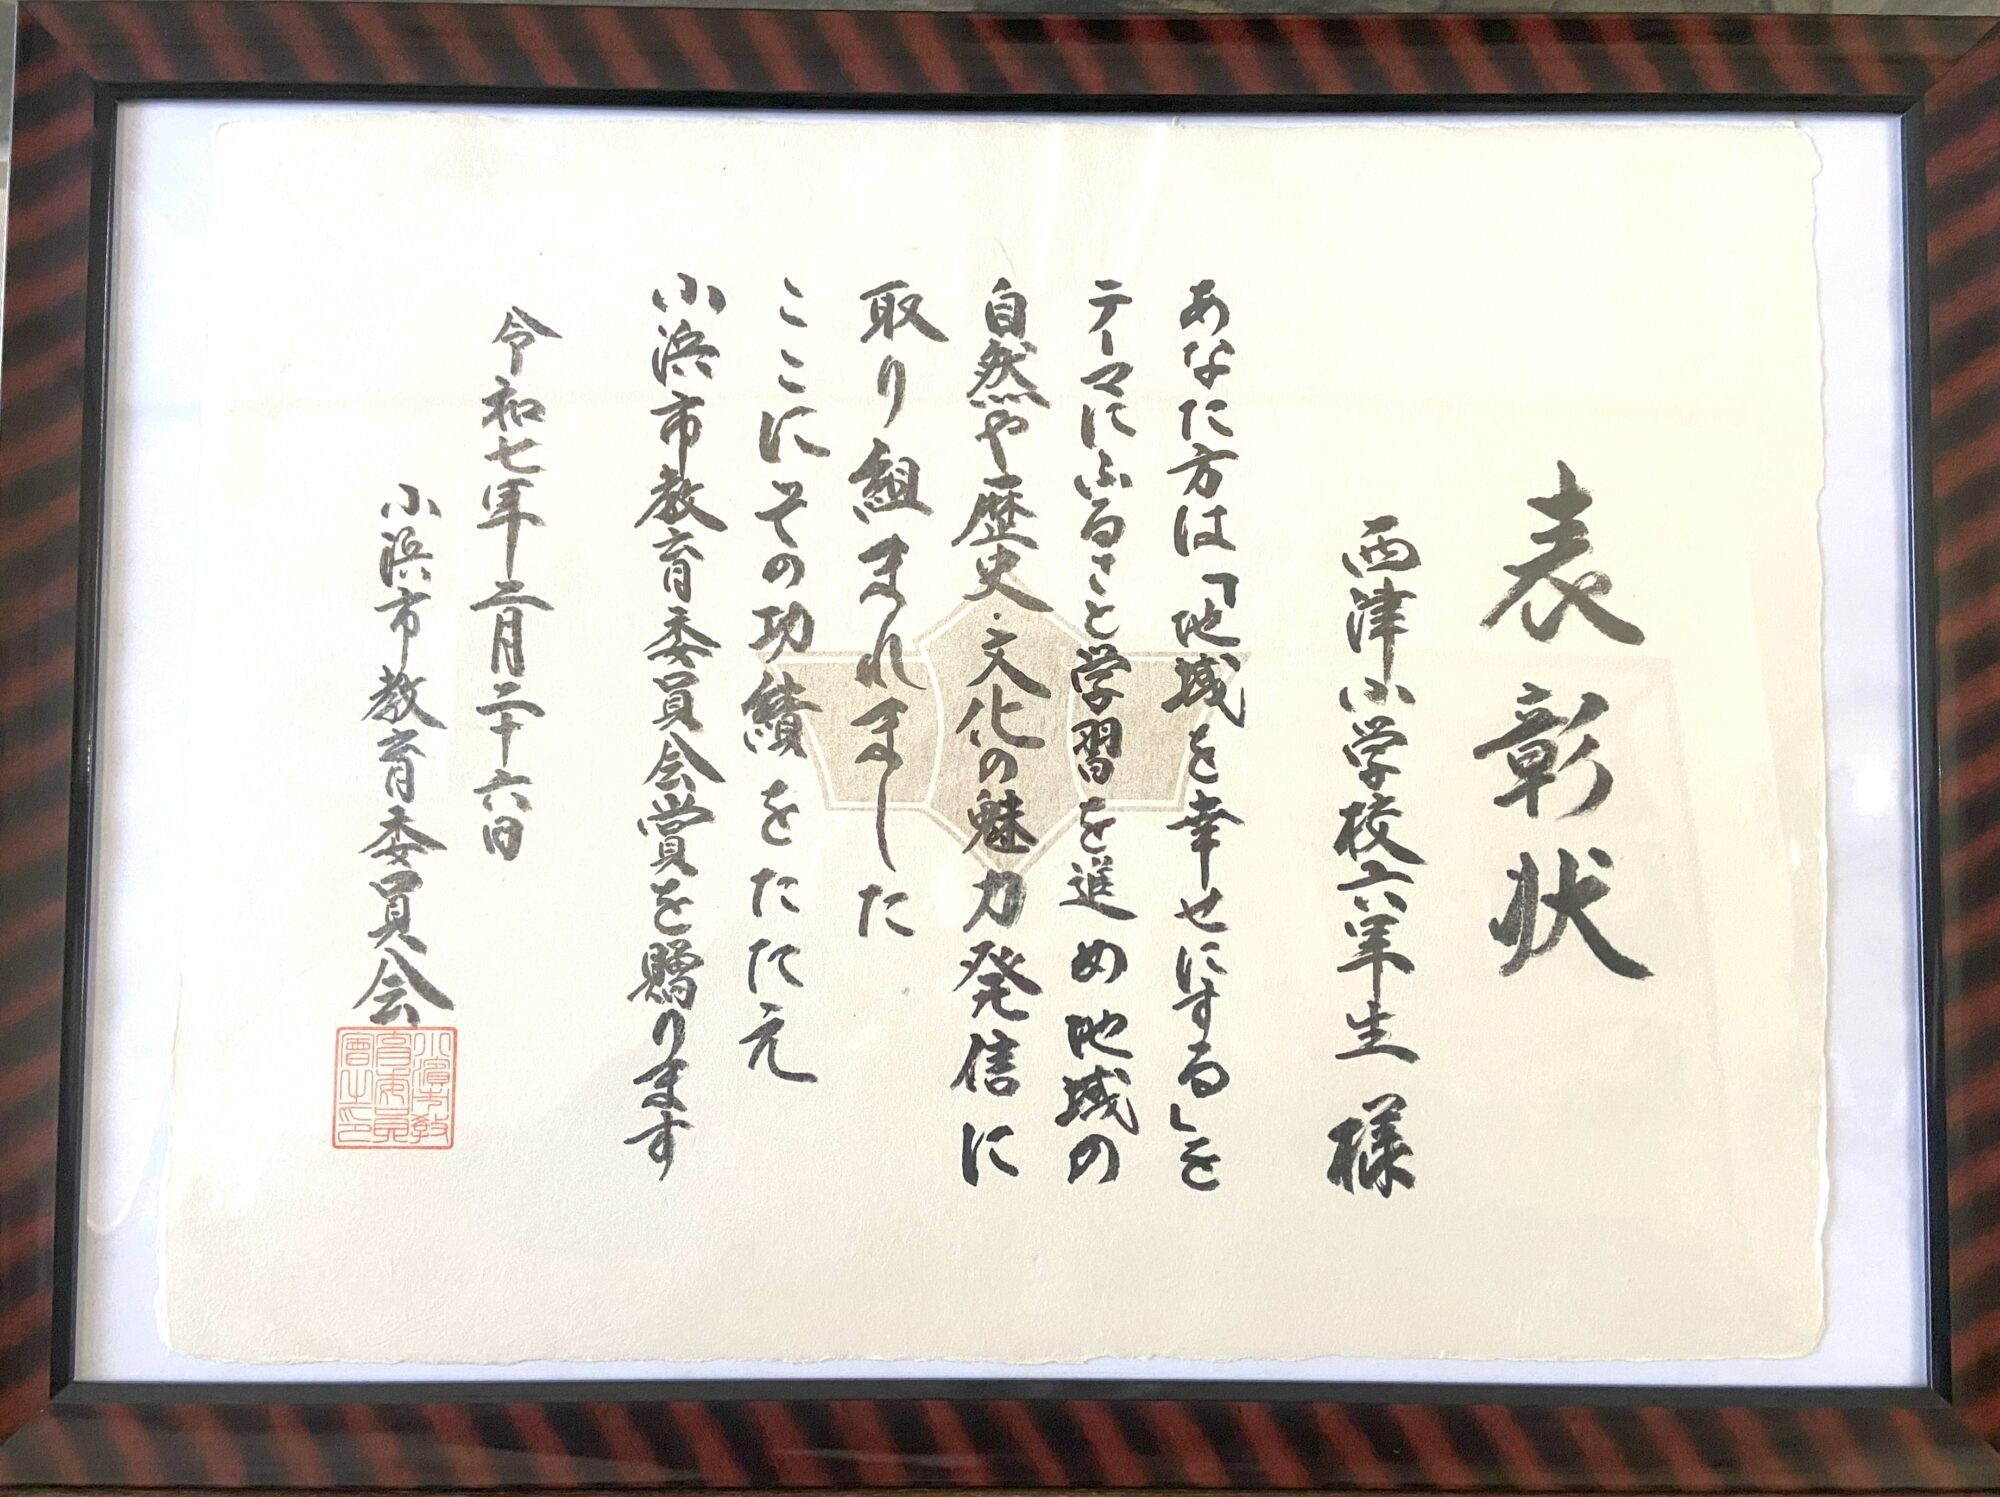 表彰状
西津小学校六年生 様
あなた方は「地域を幸せにする」を
テーマにふるさと学習を進め地域の
自然や歴史・文化の魅力発信に
取り組まれました
ここにその功績をたたえ
小浜市教育委員会賞を贈ります
令和七年二月二十六日
小浜市教育委員会